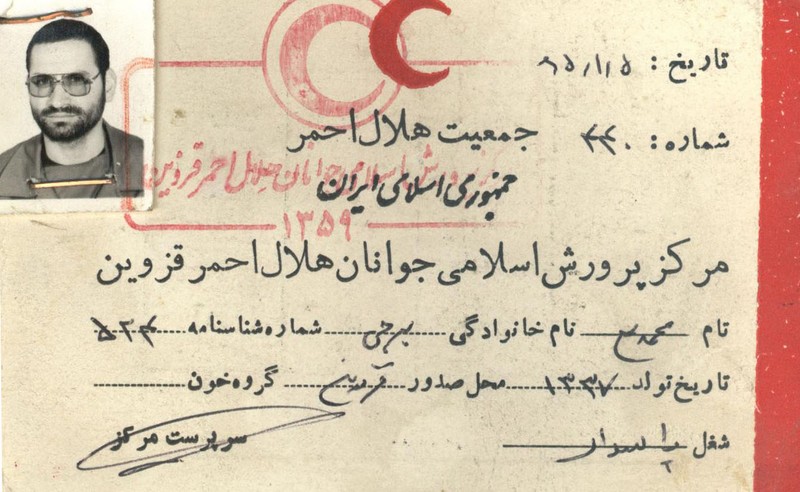 تاریخ :
جمعیت هلال احمر شماره :
پرورش اسلامی جوانان هلال احمر قزوین
جمهوری اسلامی ایران
۱۳۵۹
مرکز پرورش اسلامی جوانان هلال احمر قزوین
نام نام خانوادگی شماره شناسنامه
تاریخ تولد ۱۳۳۷ محل صدور قزوین گروه خون
شغل پاسدار سرپرست مرکز